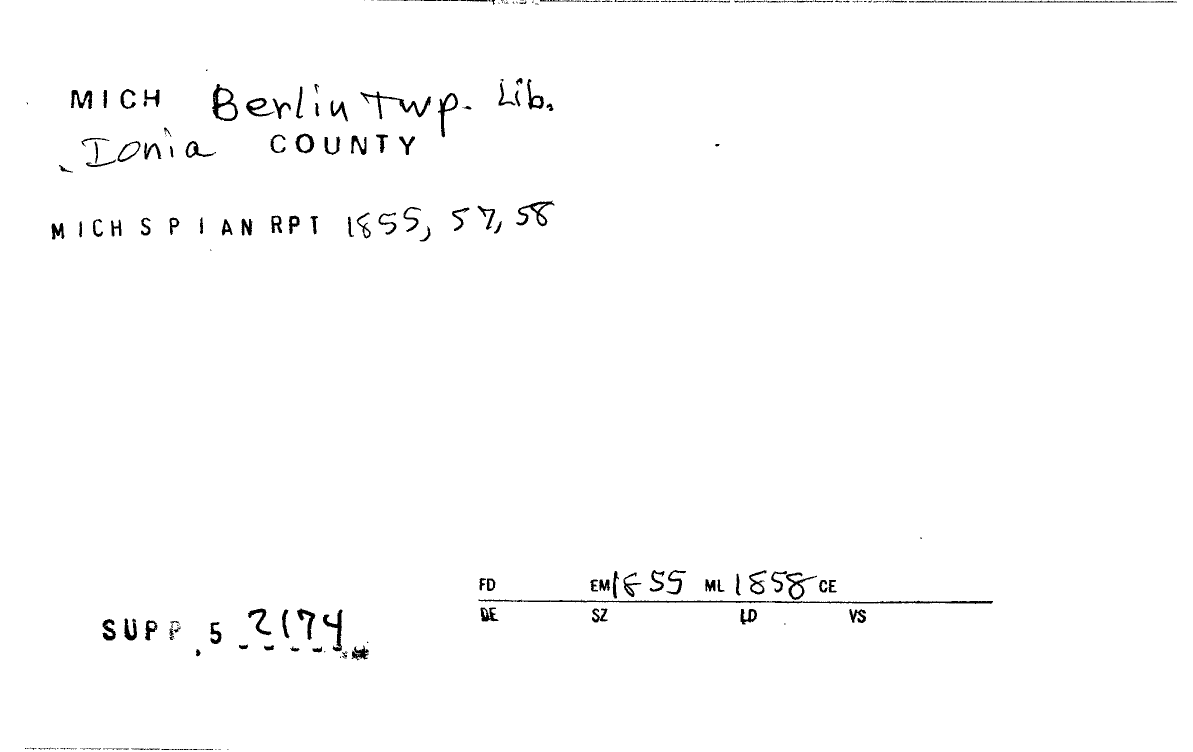 MICH Berlin Twp. Lib.
Ionia COUNTY
MICH S P I AN RPT 1855, 57, 58
FD EM 1855 ML 1858 CE
DE SZ LD VS
SUPP 5 2174